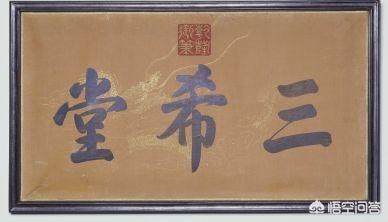 乾隆御筆
三希堂
悟空问答